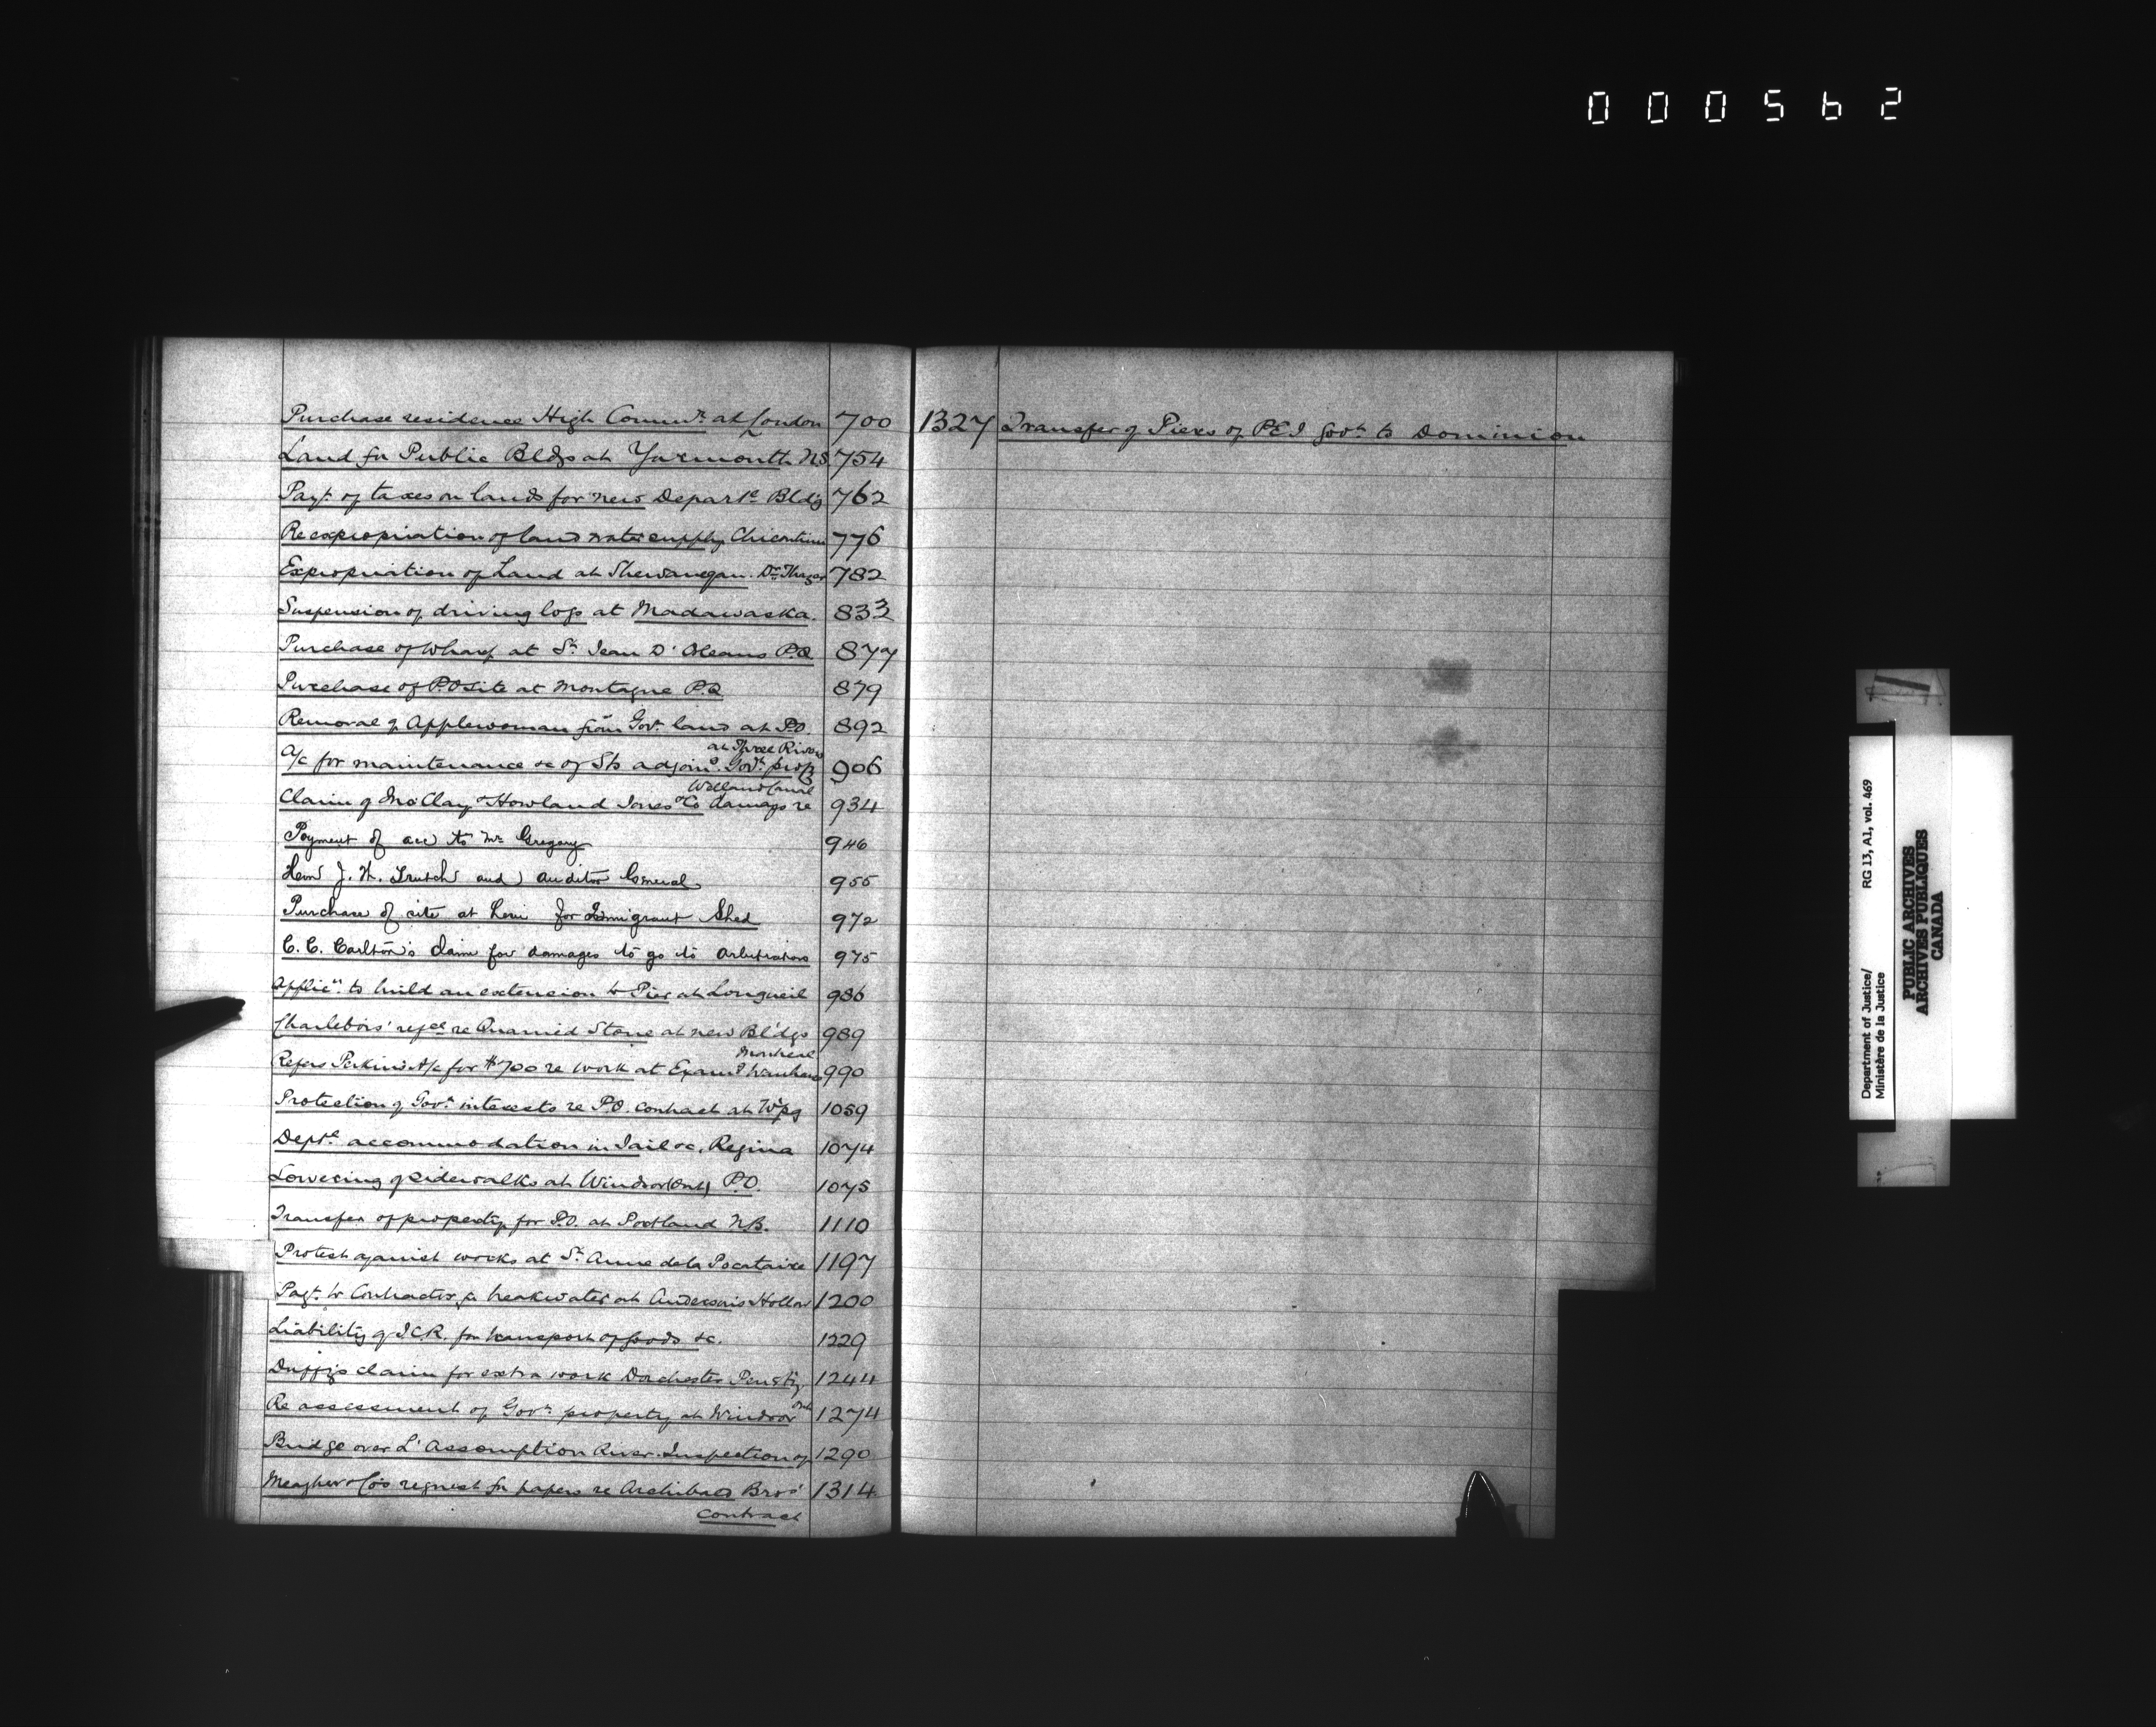 000562
Purchase residence High Commr. at London 700
Land for Public Bldgs at Yarmouth NS 754
Payt. of taxes on lands for new Departl Bldg 762
Re expropriation of land water supply Chicoutimi 776
Expropriation of Land at Shewanegan. Dr 782
Suspension of driving logs at Madawaska. 833
Purchase of Wharf at St. Jean D'Orleans P.Q 877
Purchase of P.O site at Montagne P.Q 879
Removal of Applewoman from Govt. land at P.O. 892
at Three Rivers
A/c for maintenance &c of Sts adjoing Govt. prop 906
Welland Canal
Claim of Mc Clay & Howland Jones & Co damage re 934
Payment of acc to Mr Gregory 946
Hon J. W. Trutch and Auditor General 955
Purchase of site at Levi for Immigrant Shed 972
C. C. Carlton's claim for damages to go to Arbitrators 975
Applicn. to build an extension to Pier at Longueil 986
Charlebois' re Quarried Stone at new Bl'dgs 989
Montreal
Refers Perkins A/c for $700 re work at Examg Warehouse 990
Protection of Govt. interests re P.O. contract at W'pg 1059
Deptl accommodation in Jail &c. Regina 1074
Lowering of sidewalks at Windsor (Ont) P.O. 1075
Transfer of property for P.O. at Portland N.B. 1110
Protest against works at St. Anne de la Pocataire 1197
Payt. to Contractor for breakwater at Anderson's Hollow 1200
Liability of I.C.R. for transport of goods &c. 1229
Duffy's claim for extra work Dorchester Penity 1244
Re assessment of Govt. property at Windsor Ont 1274
Bridge over L'Assomption River. Inspection of 1290
Meagher & Co's request for papers re Archibald Bros' 1314
contract
1327 Transfer of Piers of PEI Govt. to Dominion
Department of Justice/ RG 13, A1, vol. 469
Ministère de la Justice
PUBLIC ARCHIVES
ARCHIVES PUBLIQUES
CANADA